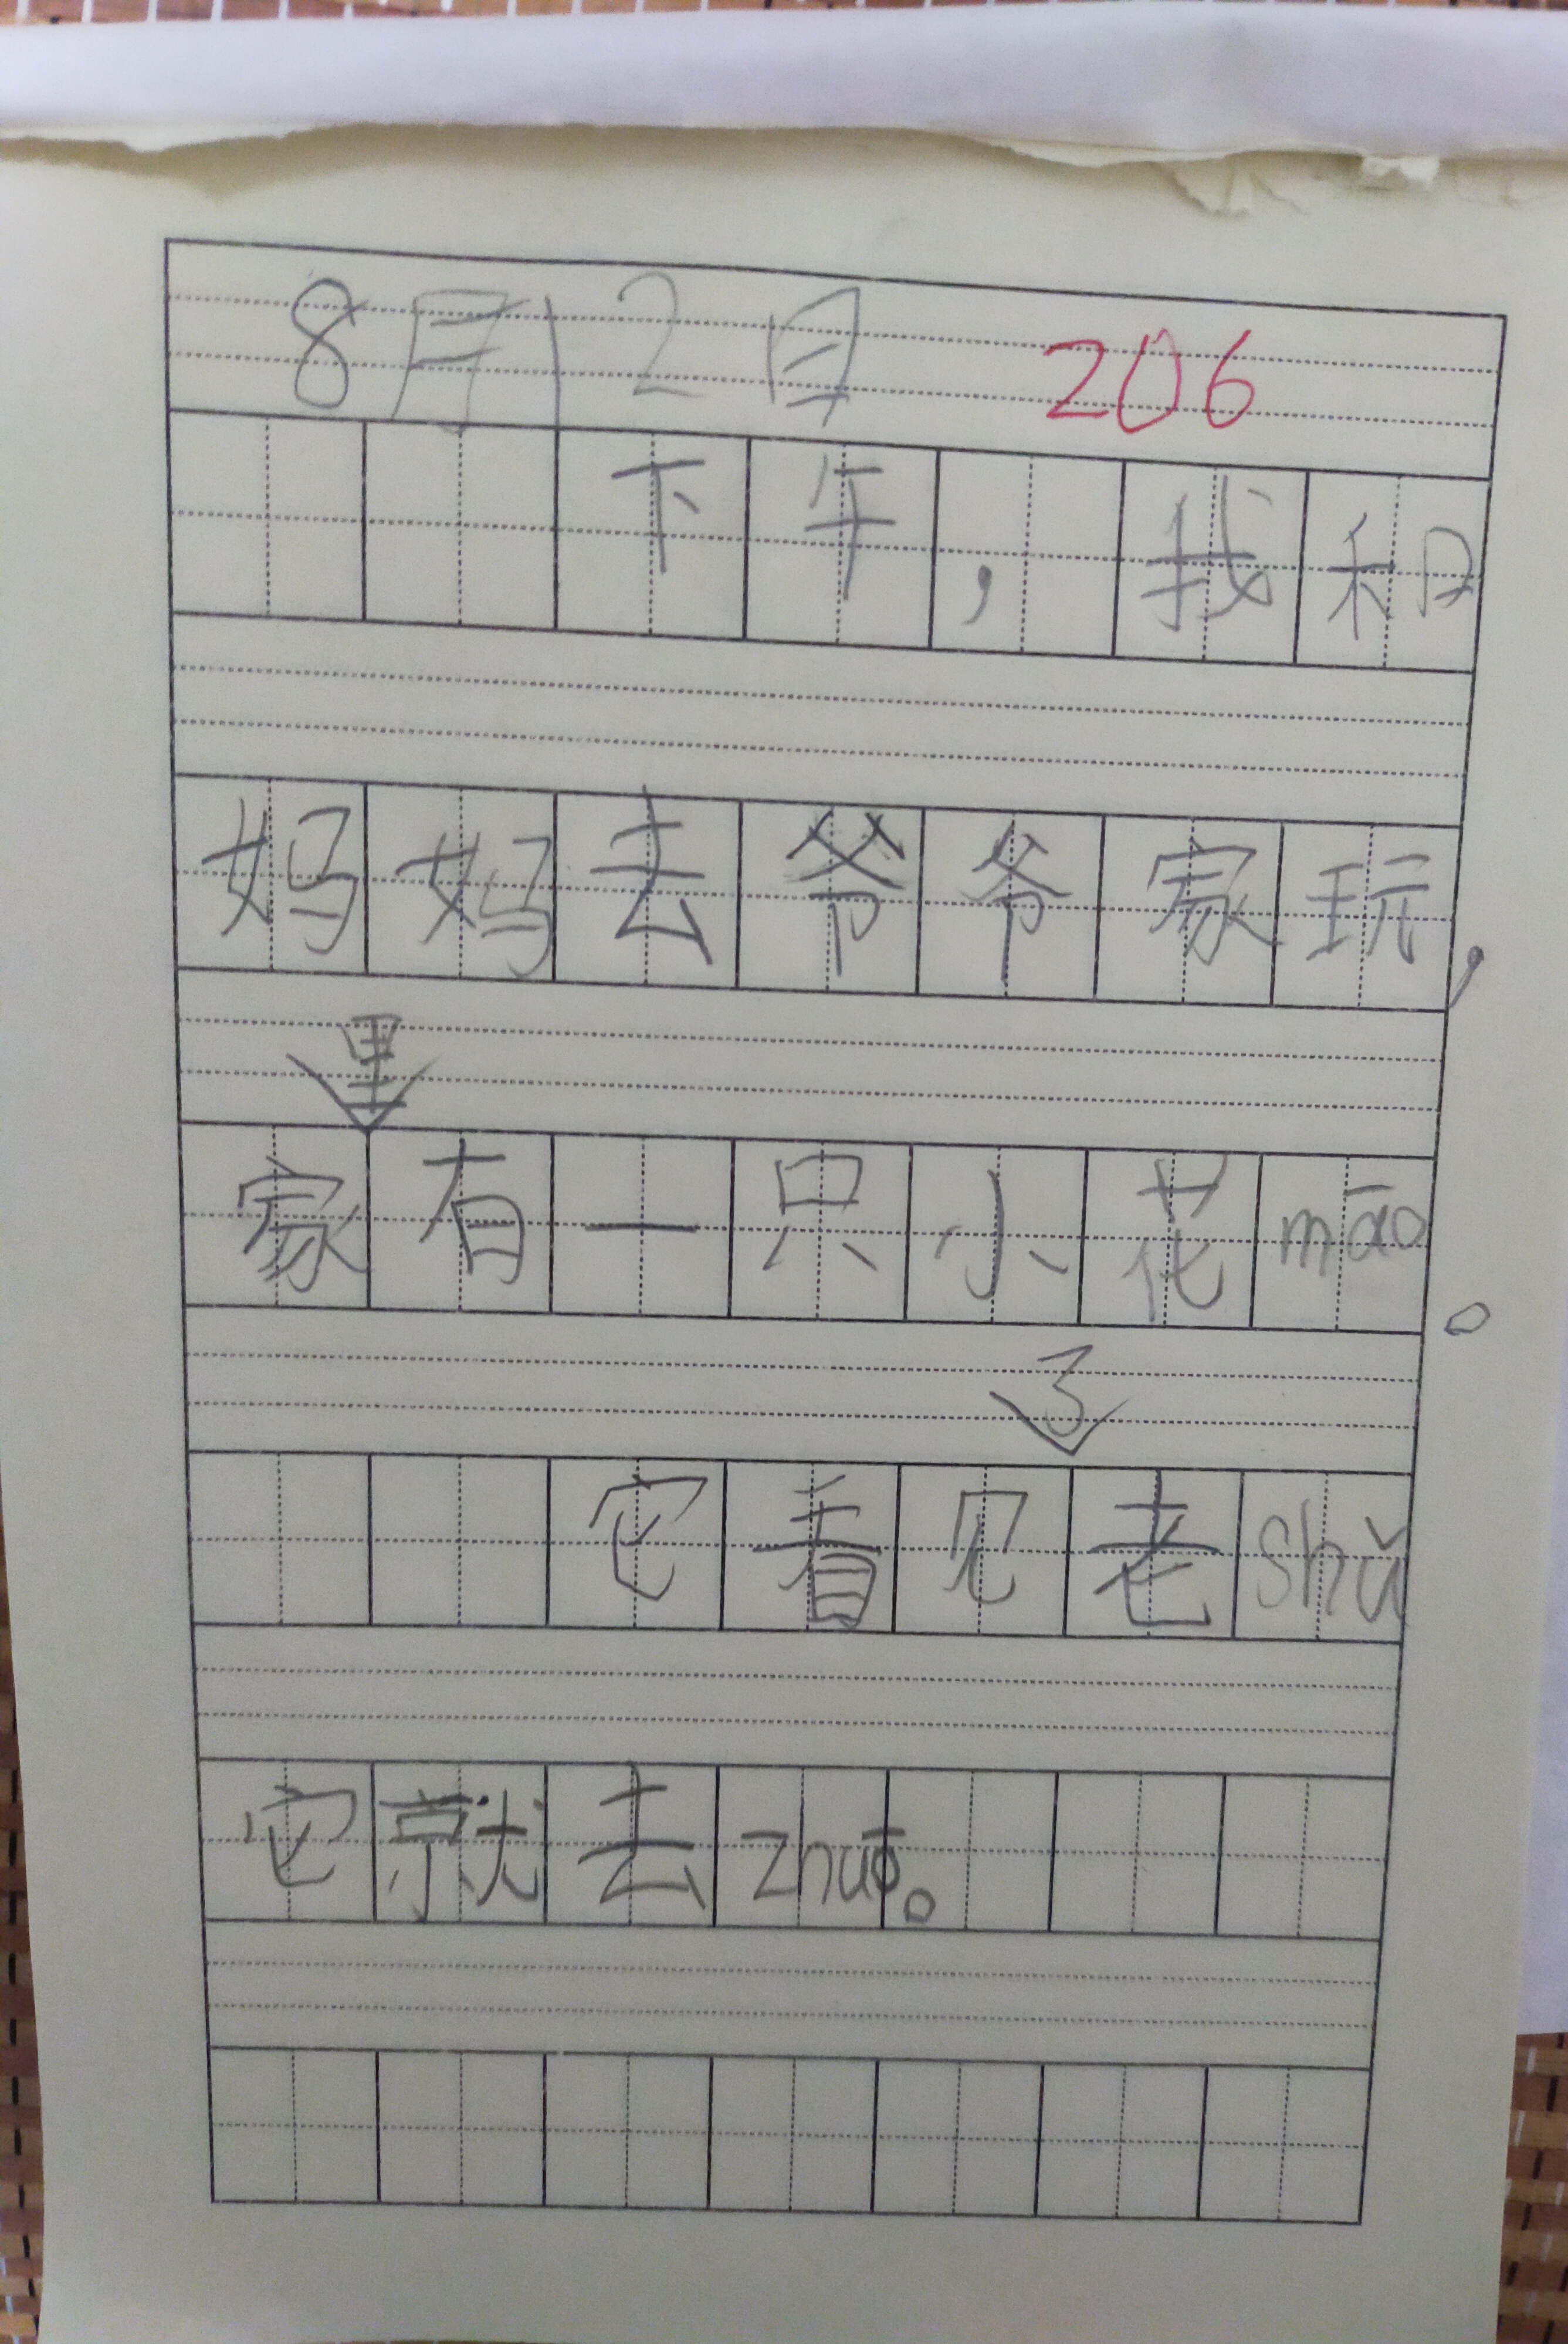 8月12日 206
下午，我和
妈妈去爷爷家玩，
家里有一只小花māo。
它看见了老shǔ
它就去zhuō。